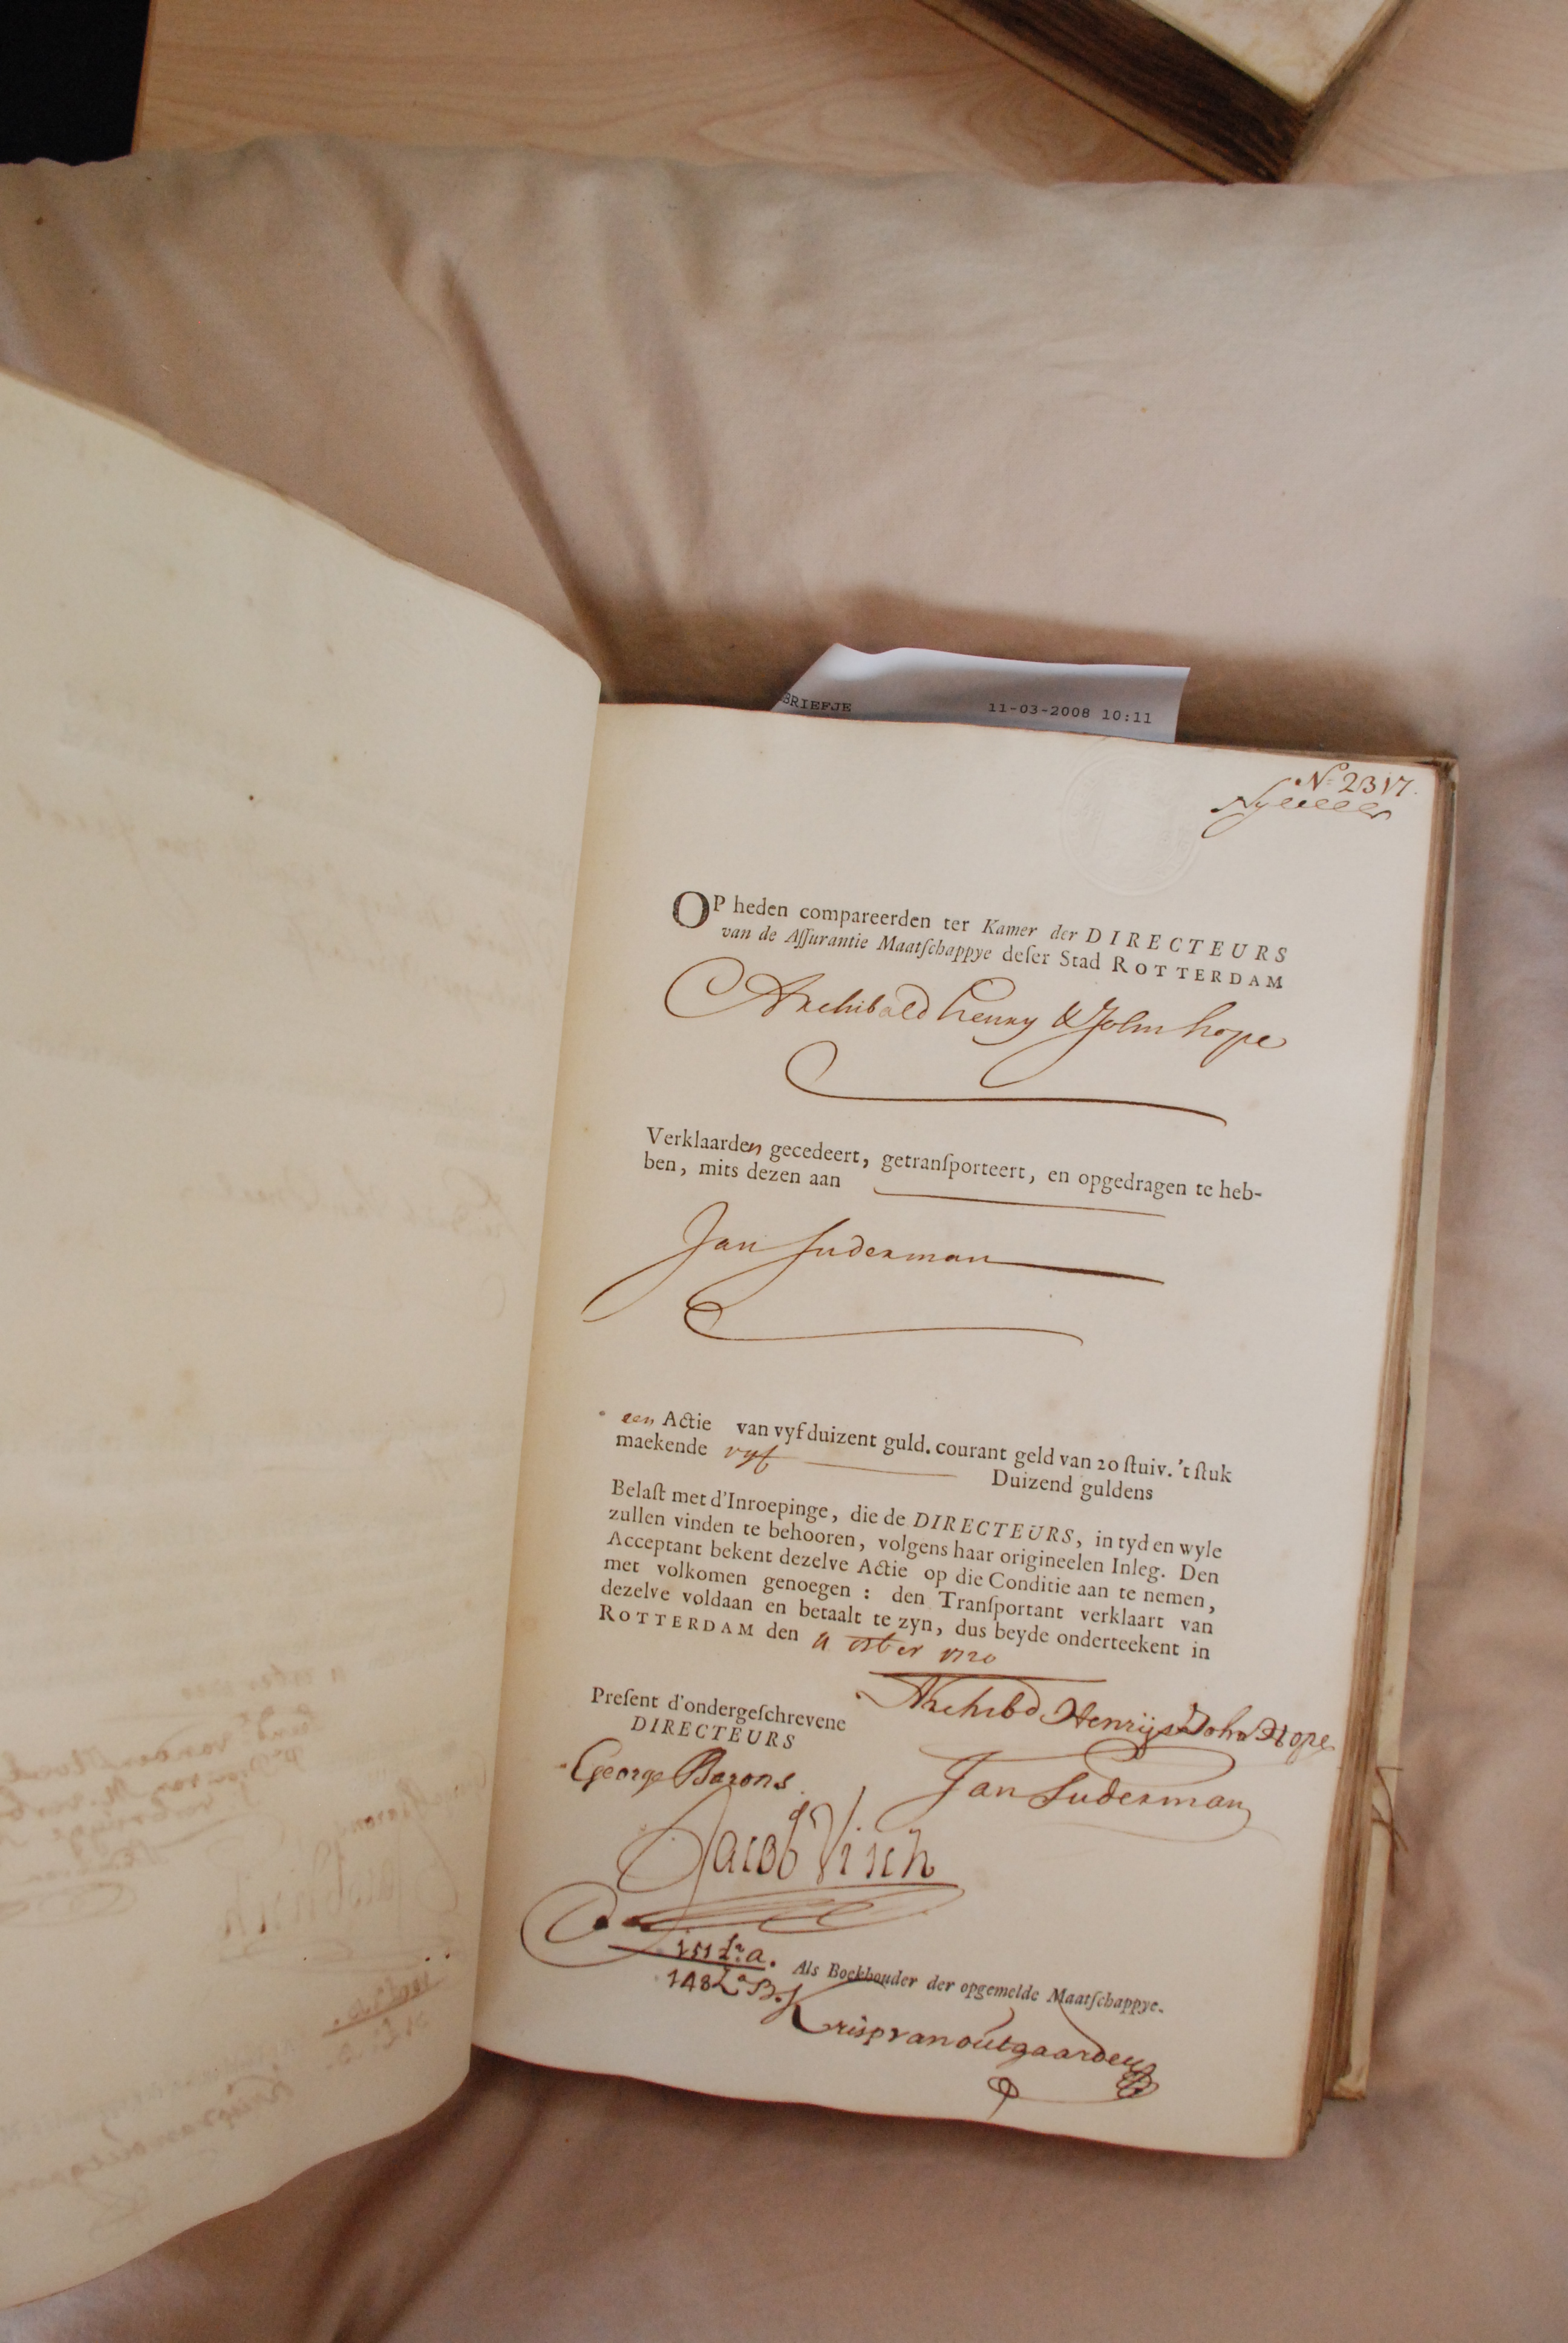 GRIEFJE 11-03-2008 10:11
No 2317.
OP heden compareerden ter Kamer der DIRECTEURS
van de Aſſurantie Maatſchappye deſer Stad ROTTERDAM
Archibald henry & John hope
Verklaarden gecedeert, getranſporteert, en opgedragen te heb-
ben, mits dezen aan
Jan Suderman
een Actie van vyf duizent guld. courant geld van 20 ſtuiv. 't ſtuk
maekende vyf Duizend guldens
Belaſt met d'Inroepinge, die de DIRECTEURS, in tyd en wyle
zullen vinden te behooren, volgens haar origineelen Inleg. Den
Acceptant bekent dezelve Actie op die Conditie aan te nemen,
met volkomen genoegen : den Tranſportant verklaart van
dezelve voldaan en betaalt te zyn, dus beyde onderteekent in
ROTTERDAM den 1720
Archibd Henry & John Hope
Preſent d'ondergeſchrevene
DIRECTEURS
George Barons
Jan Suderman
Jacob Visch
151 La. a.
Als Boekhouder der opgemelde Maatſchappye.
148 La B.
Krisp van outgaarden